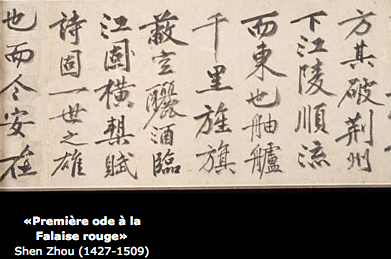 方其破荆州
下江陵順流
而東也舳艫
千里旌旗
蔽空釃酒臨
江固橫槊賦
詩固一世之雄
也而今安在
«Première ode à la
Falaise rouge»
Shen Zhou (1427-1509)